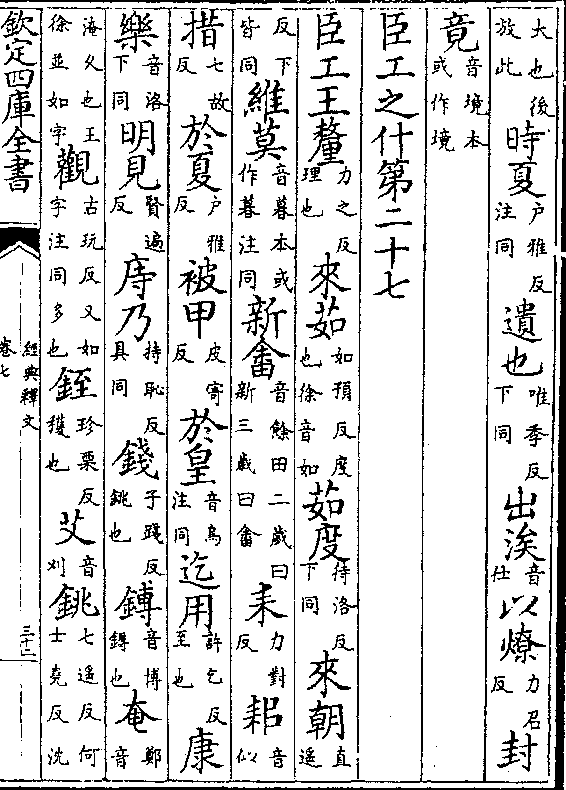 大也後放此時夏戶雅反注同遺也唯季反下同出涘音仕以燎力召反封
竟音境本或作境
臣工之什第二十七
臣工王釐力之反理也來茹如預反度也徐音如茹度待洛反下同來朝直遥
反下皆同維莫音暮本或作暮注同新畬音餘田二歲曰新三歲曰畬耒力對反耜音似
措七故反於夏戶雅反被甲皮寄反於皇音烏注同迄用許乞反至也康
樂音洛下同明見賢遍反庤乃持恥反具同錢子踐反銚也鎛音博鎒也奄鄭音
淹久也王徐並如字觀古玩反又如字注同多也銍珍栗反穫也艾音刈銚七遥反何士堯反沈
欽定四庫全書
經典釋文
卷七
三十二